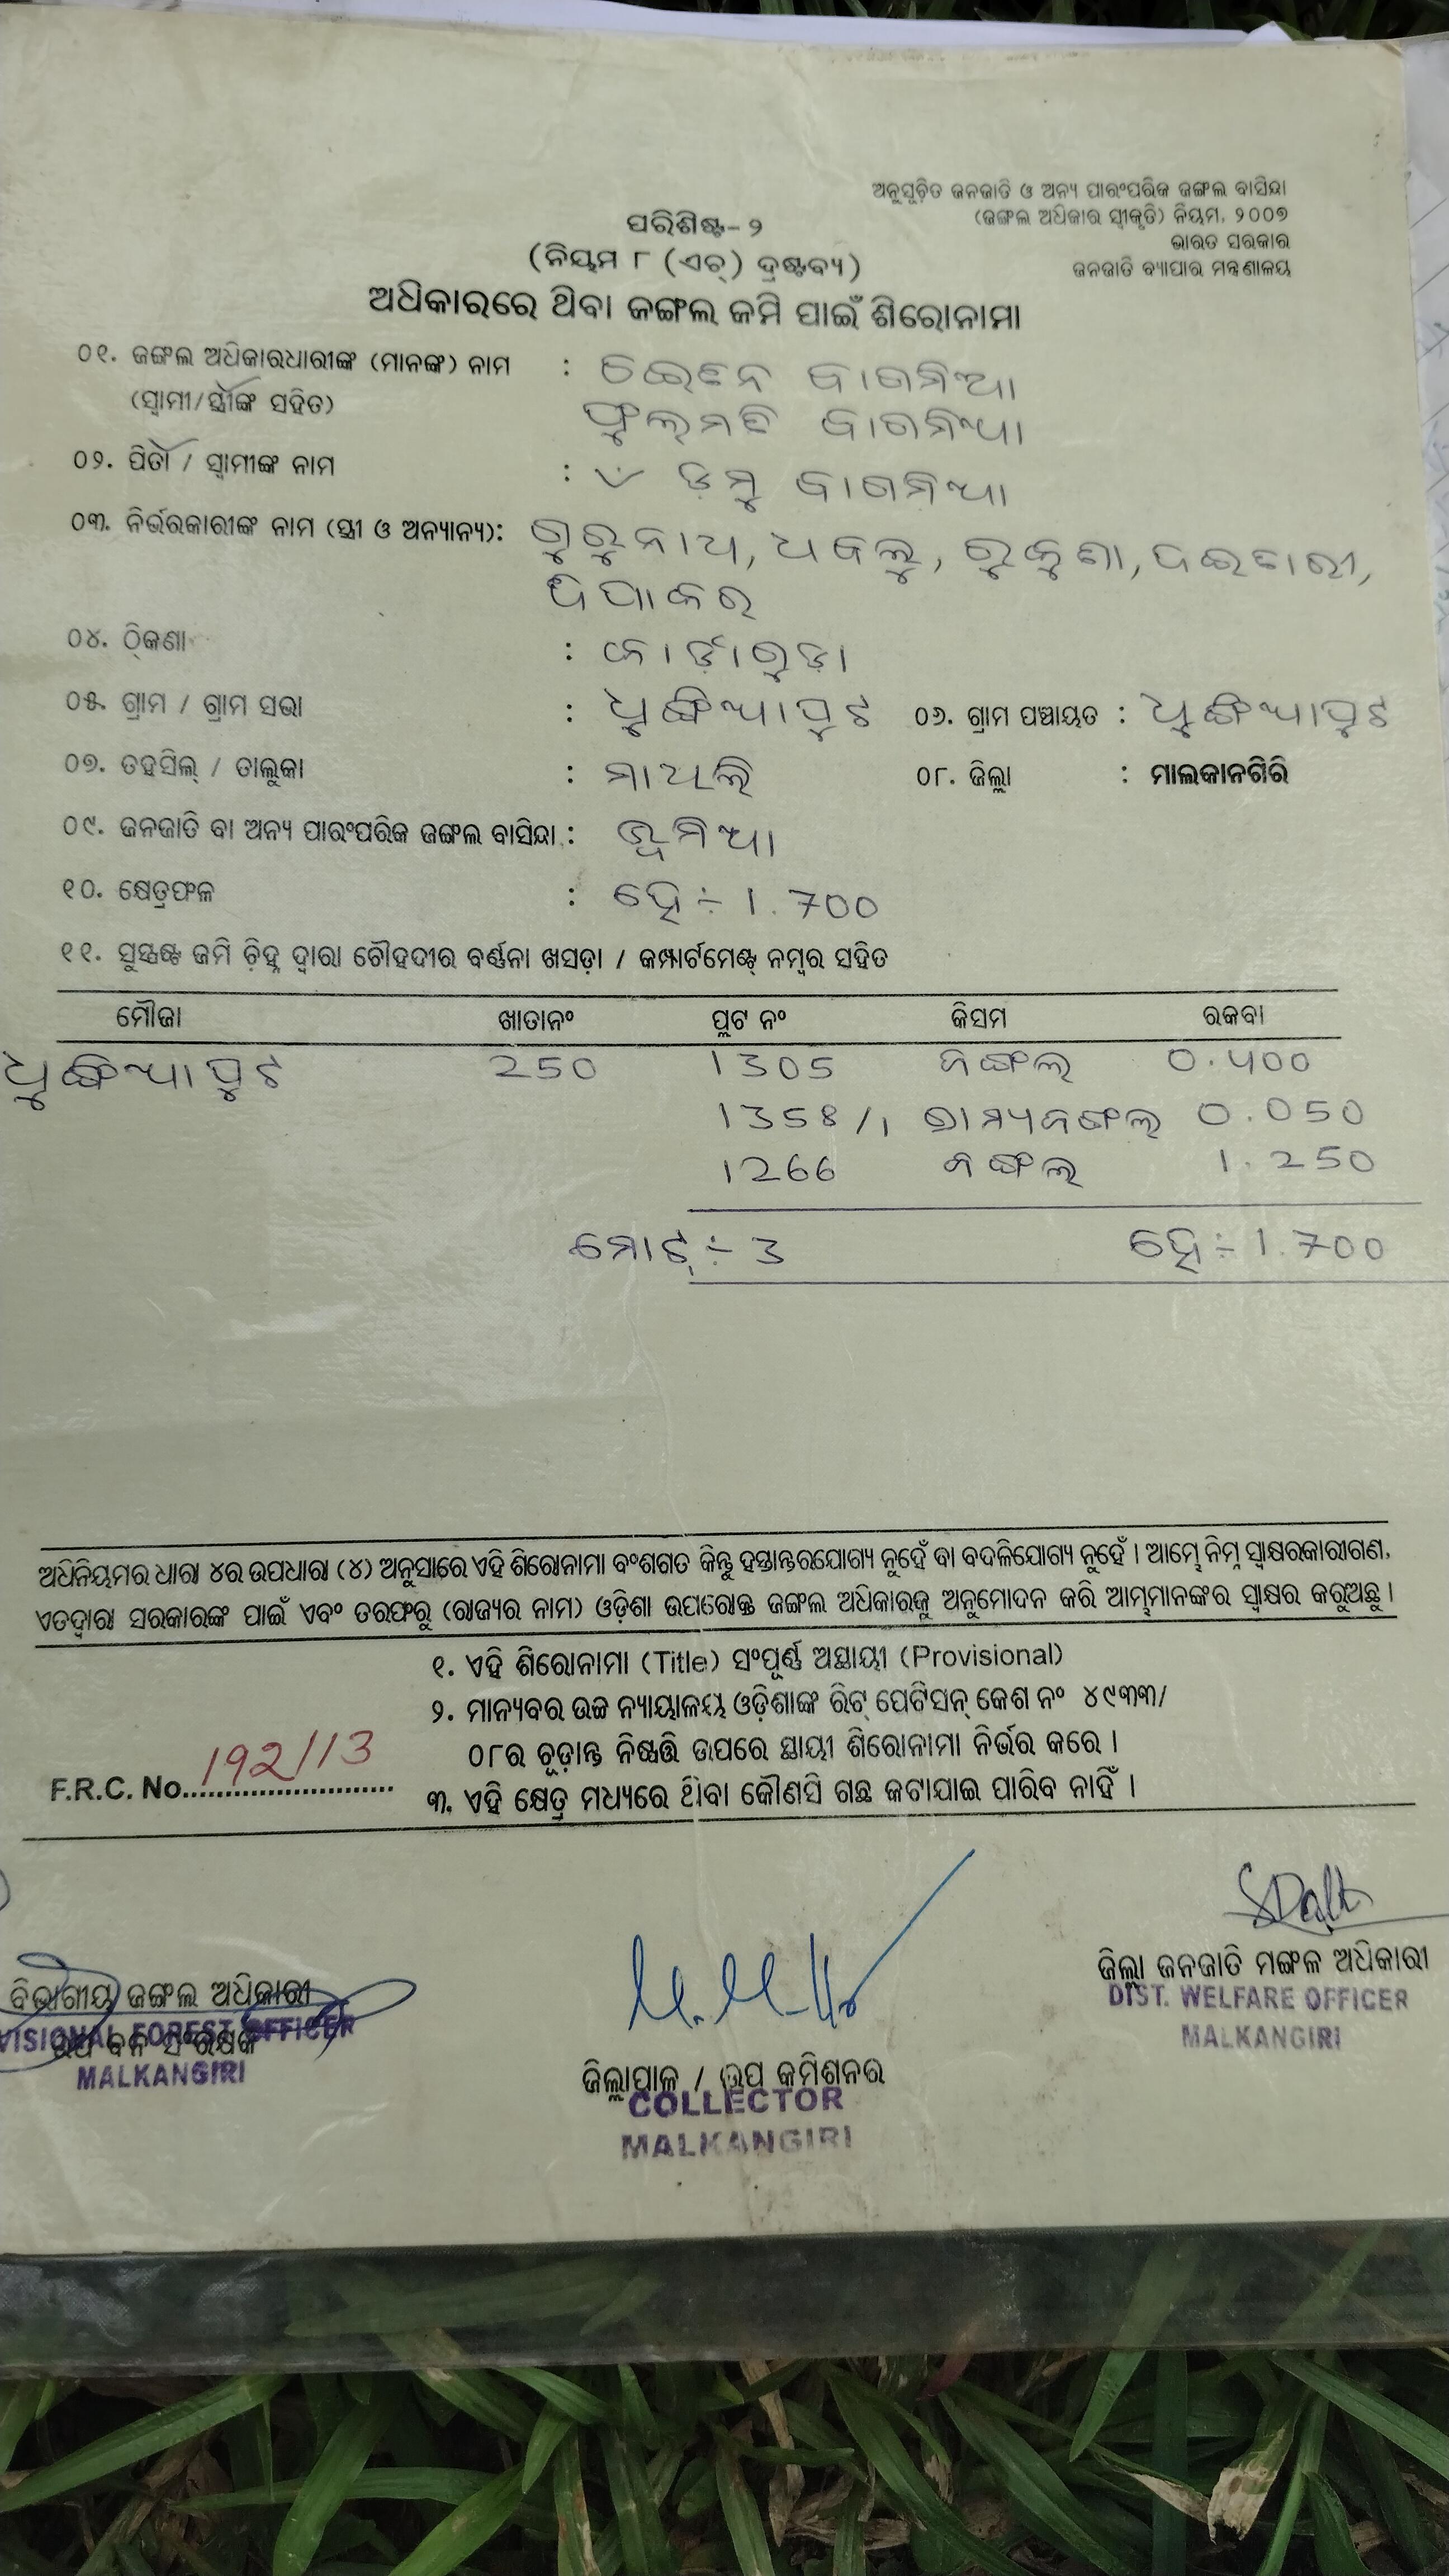 ଅନୁସୂଚିତ ଜନଜାତି ଓ ଅନ୍ୟ ପାରଂପରିକ ଜଙ୍ଗଲ ବାସିନ୍ଦା
(ଜଙ୍ଗଲ ଅଧିକାର ସ୍ୱୀକୃତି) ନିୟମ, ୨୦୦୭
ଭାରତ ସରକାର
ଜନଜାତି ବ୍ୟାପାର ମନ୍ତ୍ରଣାଳୟ
ପରିଶିଷ୍ଟ-୨
(ନିୟମ ୮ (ଏଚ୍) ଦ୍ରଷ୍ଟବ୍ୟ)
ଅଧିକାରରେ ଥିବା ଜଙ୍ଗଲ ଜମି ପାଇଁ ଶିରୋନାମା
୦୧. ଜଙ୍ଗଲ ଅଧିକାରଧାରୀଙ୍କ (ମାନଙ୍କ) ନାମ :
(ସ୍ୱାମୀ/ସ୍ତ୍ରୀଙ୍କ ସହିତ)
୦୨. ପିତା / ସ୍ୱାମୀଙ୍କ ନାମ :
୦୩. ନିର୍ଭରକାରୀଙ୍କ ନାମ (ସ୍ତ୍ରୀ ଓ ଅନ୍ୟାନ୍ୟ): ଗୁରୁନାଥ,
୦୪. ଠିକଣା :
୦୫. ଗ୍ରାମ / ଗ୍ରାମ ସଭା : ଧୁଙ୍ଗିଆପୁଟ ୦୬. ଗ୍ରାମ ପଞ୍ଚାୟତ : ଧୁଙ୍ଗିଆପୁଟ
୦୭. ତହସିଲ୍ / ତାଲୁକା : ମାଥିଲି ୦୮. ଜିଲ୍ଲା : ମାଲକାନଗିରି
୦୯. ଜନଜାତି ବା ଅନ୍ୟ ପାରଂପରିକ ଜଙ୍ଗଲ ବାସିନ୍ଦା : ଭୂମିଆ
୧୦. କ୍ଷେତ୍ରଫଳ : ହେ ÷ 1.700
୧୧. ସୁସ୍ପଷ୍ଟ ଜମି ଚିହ୍ନ ଦ୍ୱାରା ଚୌହଦୀର ବର୍ଣ୍ଣନା ଖସଡ଼ା / କମ୍ପାର୍ଟମେଣ୍ଟ୍ ନମ୍ବର ସହିତ
ମୌଜା ଖାତାନଂ ପ୍ଲଟ ନଂ କିସମ ରକବା
ଧୁଙ୍ଗିଆପୁଟ 250 1305 ଜଙ୍ଗଲ 0.400
1358/1 ଗ୍ରାମ୍ୟଜଙ୍ଗଲ 0.050
1266 ଜଙ୍ଗଲ 1.250
ମୋଟ୍ ÷ 3 ହେ ÷ 1.700
ଅଧିନିୟମର ଧାରା ୪ର ଉପଧାରା (୪) ଅନୁସାରେ ଏହି ଶିରୋନାମା ବଂଶଗତ କିନ୍ତୁ ହସ୍ତାନ୍ତରଯୋଗ୍ୟ ନୁହେଁ ବା ବଦଳିଯୋଗ୍ୟ ନୁହେଁ । ଆମ୍ଭେ ନିମ୍ନ ସ୍ୱାକ୍ଷରକାରୀଗଣ,
ଏତଦ୍ୱାରା ସରକାରଙ୍କ ପାଇଁ ଏବଂ ତରଫରୁ (ରାଜ୍ୟର ନାମ) ଓଡ଼ିଶା ଉପରୋକ୍ତ ଜଙ୍ଗଲ ଅଧିକାରକୁ ଅନୁମୋଦନ କରି ଆମ୍ଭମାନଙ୍କର ସ୍ୱାକ୍ଷର କରୁଅଛୁ ।
୧. ଏହି ଶିରୋନାମା (Title) ସଂପୂର୍ଣ୍ଣ ଅସ୍ଥାୟୀ (Provisional)
୨. ମାନ୍ୟବର ଉଚ୍ଚ ନ୍ୟାୟାଳୟ ଓଡ଼ିଶାଙ୍କ ରିଟ୍ ପେଟିସନ୍ କେଶ ନଂ ୪୯୩୩/
୦୮ର ଚୂଡ଼ାନ୍ତ ନିଷ୍ପତ୍ତି ଉପରେ ସ୍ଥାୟୀ ଶିରୋନାମା ନିର୍ଭର କରେ ।
F.R.C. No. 192/13
୩. ଏହି କ୍ଷେତ୍ର ମଧ୍ୟରେ ଥିବା କୌଣସି ଗଛ କଟାଯାଇ ପାରିବ ନାହିଁ ।
ବିଭାଗୀୟ ଜଙ୍ଗଲ ଅଧିକାରୀ
ଉପ ବନ ସଂରକ୍ଷକ
VISIONAL FOREST OFFICER
MALKANGIRI
ଜିଲ୍ଲାପାଳ / ଉପ କମିଶନର
COLLECTOR
MALKANGIRI
ଜିଲ୍ଲା ଜନଜାତି ମଙ୍ଗଳ ଅଧିକାରୀ
DIST. WELFARE OFFICER
MALKANGIRI